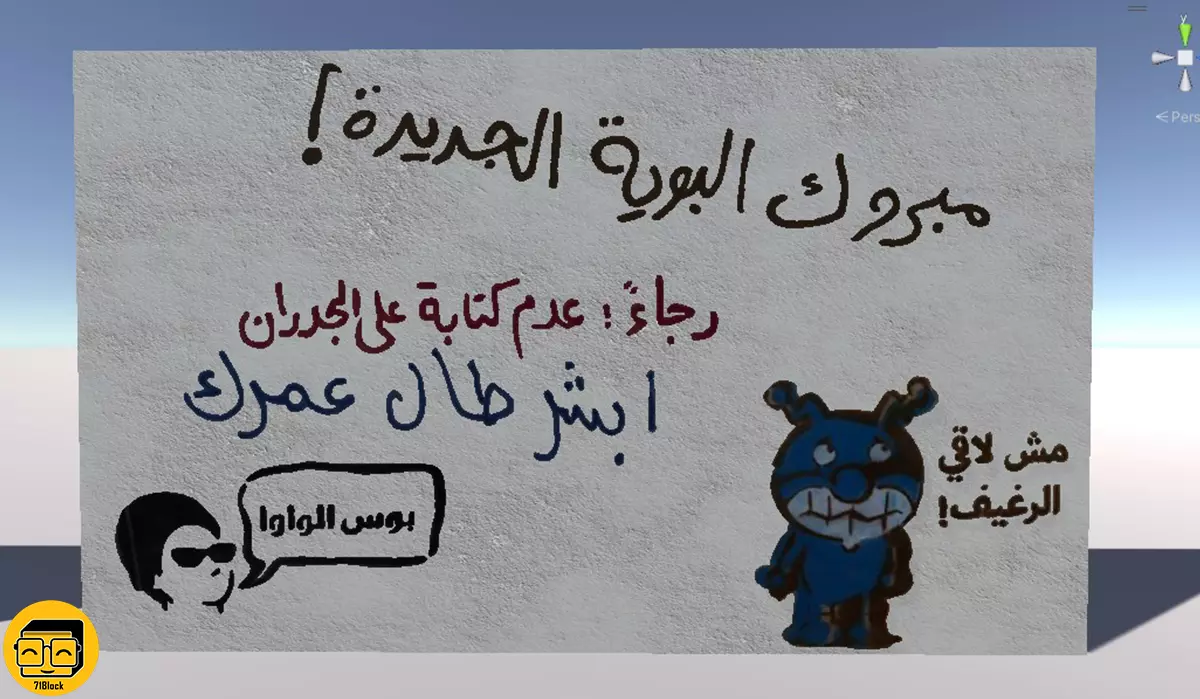 مبروك البوية الجديدة!
رجاءً؛ عدم كتابة على الجدران
ابشر طال عمرك
بوس الواوا
مش لاقي
الرغيف!
71Block
y
Pers